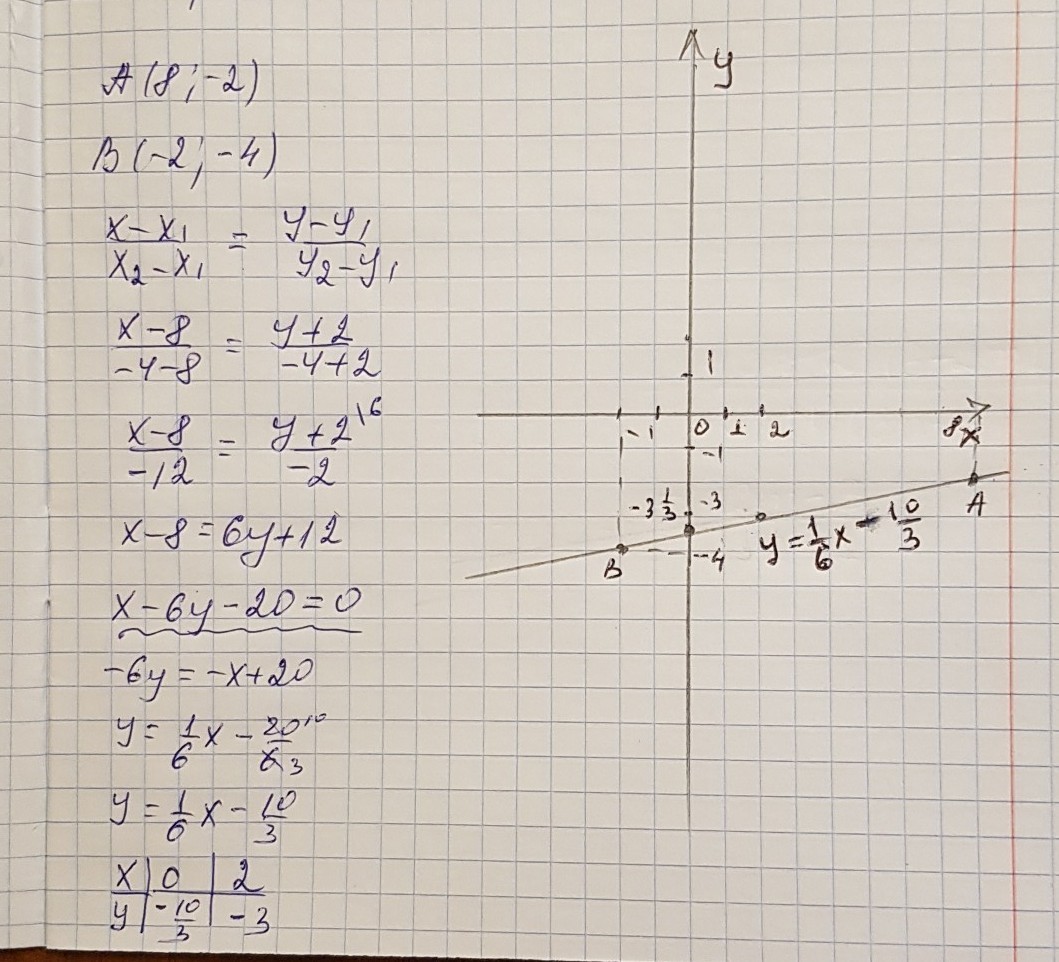 A(8;-2)
B(-2;-4)
x-x₁/x₂-x₁ = y-y₁/y₂-y₁
x-8/-4-8 = y+2/-4+2
x-8/-12 = y+2\6/-2
x-8=6y+12
x-6y-20=0
-6y=-x+20
y= 1/6 x - 20 10/6 3
y= 1/6 x - 10/3
x | 0 | 2
y | -10/3 | -3
y
1
-1 0 1 2 8 x
-1
-3 1/3 -3
A
y = 1/6 x - 10/3
B -4